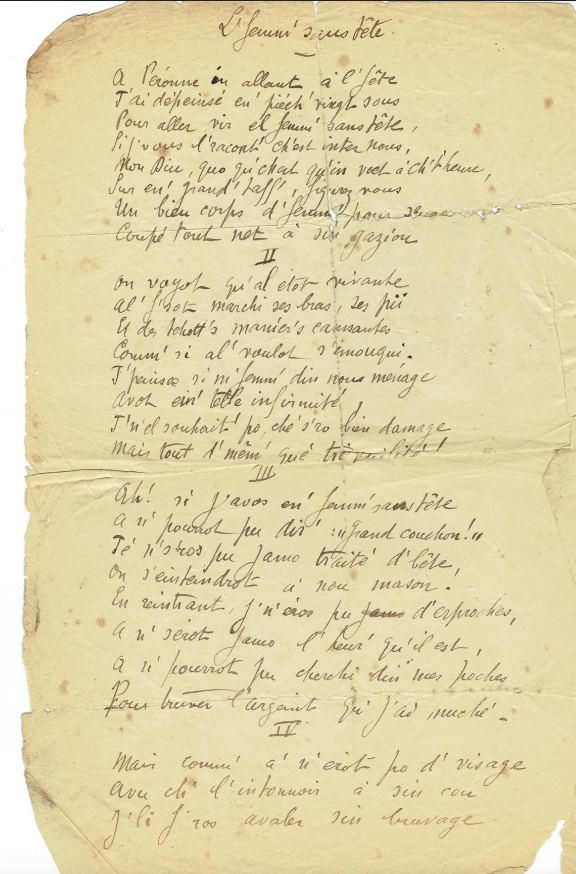 L' femm' sans tête.
A Péronne in allant à l'fête
J'ai dépeinsé en' pièch' vingt sous
Pour aller vir el femm' sans tête,
Si j'vous l'raconte ch'est inter nous,
Mon Diu, quo qu'chest qu'in voet à ch't'heure,
Sur en' grand' taff', figurez vous
Un bieu corps d'femm'
Coupé tout net à sin gaziou
II
On voyot qu'al étot vivante
Al' f'sot marchi ses bras, ses pii
Et des tchott's manièr's
Comm' si al' voulot s'emouqui.
J'peinsos si m'femm' din nous ménage
Avot ein' telle infirmité,
J'n'el souhait' po, ché s'ro bien damage
Mais tout d'mêm' qué tranquilité!
III
Ah! si j'avos en' femm' sans tête
A n' pourrot pu dir' : "grand couchon!"
Jé n's'ros pu jamo traité d'bête,
On s'eintendrot à nou mason.
En reintrant, j'n'éros pu jamo d'erproches,
A n' sérot jamo l'heur' qu'il est,
A n' pourrot pu cherchi din mes poches
Pour truver l'argeint qu'j'ai muché.
IV
Mais comm' a' n' érot po d'visage
Avu ch' l'intonnoir à sin cou
J'li f'ros avaler sin bruvage